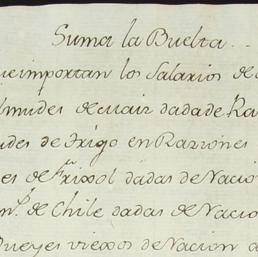 Suma la Buelta..
ue importan los Salarios de
lmudes de Maiz dada de Ra
udes de Trigo en Razzones
es de Frixol dadas de Nacio
n.s de Chile dadas de Nacio
Bueyes viexos de Nacion a